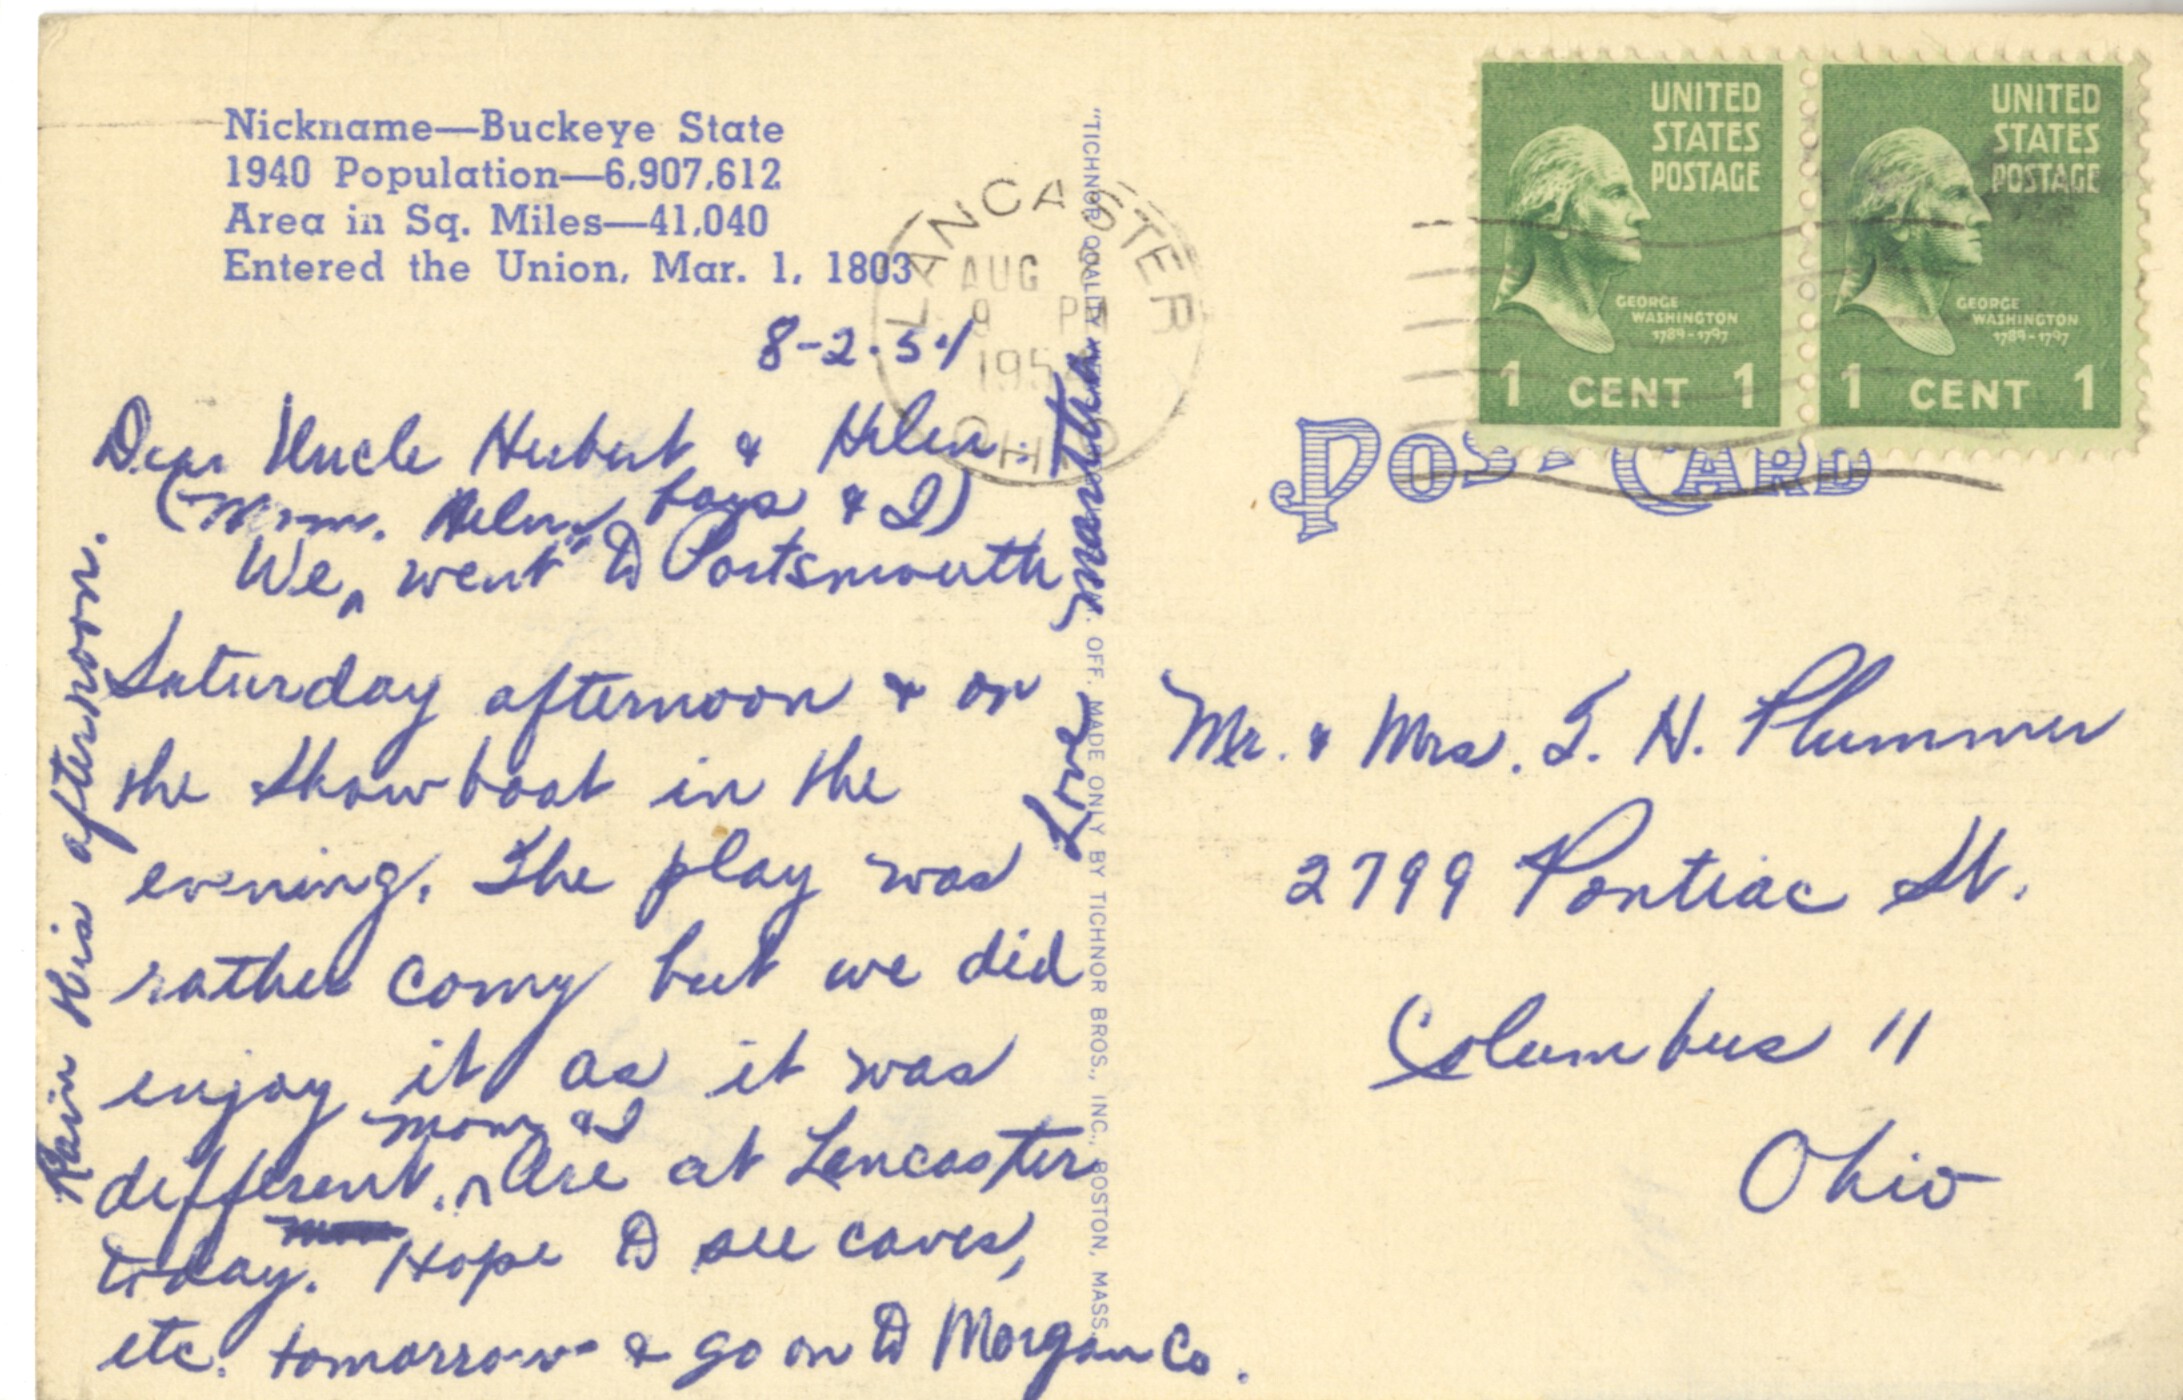 Nickname—Buckeye State
1940 Population—6,907,612
Area in Sq. Miles—41,040
Entered the Union, Mar. 1, 1803
LANCASTER
AUG
9 PM
1954
OHIO
UNITED
STATES
POSTAGE
GEORGE
WASHINGTON
1789-1797
1 CENT 1
UNITED
STATES
POSTAGE
GEORGE
WASHINGTON
1789-1797
1 CENT 1
POST CARD
8-2-54
Dear Uncle Hubert & Helen:
(Mom. Helen, boys & I)
We ^ went to Portsmouth
Saturday afternoon & on
the Showboat in the
evening. The play was
rather corny but we did
enjoy it as it was
Mom & I
different. ^ Are at Lancaster
today. Hope to see caves,
etc. tomorrow & go on to Morgan Co.
Rain this afternoon.
Love Martha
"TICHNOR QUALITY OFF. MADE ONLY BY TICHNOR BROS., INC., BOSTON, MASS.
Mr. & Mrs. T. H. Plummer
2799 Pontiac St.
Columbus 11
Ohio